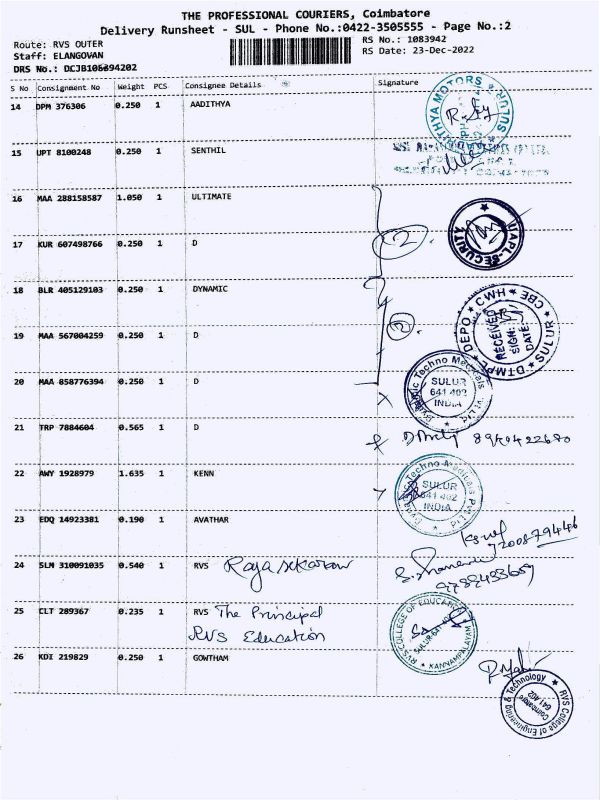 THE PROFESSIONAL COURIERS, Coimbatore
Delivery Runsheet - SUL - Phone No.:0422-3505555 - Page No.:2
Route: RVS OUTER
RS No.: 1083942
Staff: ELANGOVAN
RS Date: 23-Dec-2022
DRS No.: DCJB106394202
S No Consignment No Weight PCS Consignee Details Signature
14 DPM 376306 0.250 1 AADITHYA
MOTORS SULUR
15 UPT 8100248 0.250 1 SENTHIL
16 MAA 288158587 1.050 1 ULTIMATE
2
UAPL-SECURITY
17 KUR 607498766 0.250 1 D
18 BLR 405129103 0.250 1 DYNAMIC
19 MAA 567004259 0.250 1 D
DTMPL DEPO. CWH CBE SULUR
RECEIVED
SIGN:
DATE:
20 MAA 858776394 0.250 1 D
Dynamic Techno Medicals Pvt Ltd
SULUR
641 402
INDIA
21 TRP 7884604 0.565 1 D
22 AWY 1928979 1.635 1 KENN
Dynamic Techno-Medicals Pvt Ltd
SULUR
641 402
INDIA
23 EDQ 14923381 0.190 1 AVATHAR
24 SLM 310091035 0.540 1 RVS Rajasekaran
25 CLT 289367 0.235 1 RVS The Principal
RVS Education
RVS COLLEGE OF EDUCATION KANNAMPALAYAM
SULUR-641 402
26 KDI 219829 0.250 1 GOWTHAM
RVS College of Engineering & Technology
Coimbatore
641 402